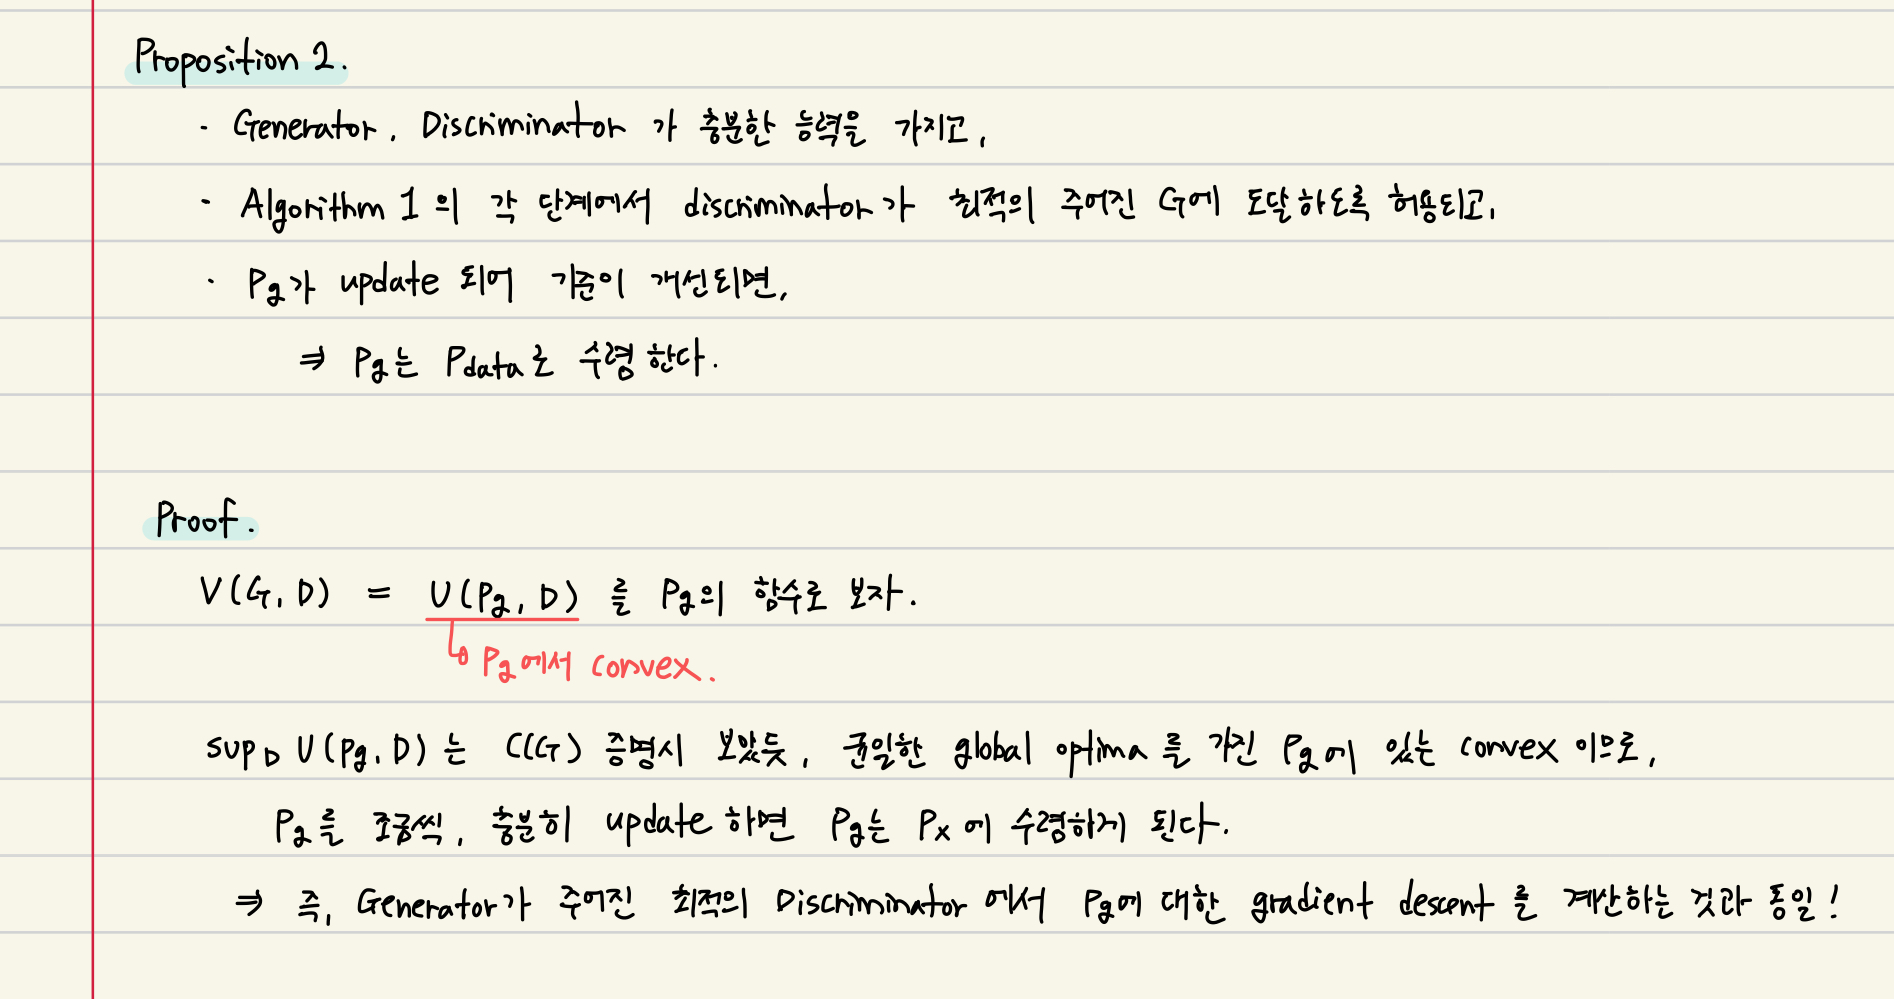 Proposition 2.
· Generator, Discriminator 가 충분한 능력을 가지고,
· Algorithm 1 의 각 단계에서 discriminator가 최적의 주어진 G에 도달하도록 허용되고,
· Pg가 update 되어 기준이 개선되면,
⇒ Pg는 Pdata로 수렴 한다.
Proof.
V(G, D) = U(Pg, D) 를 Pg의 함수로 보자.
↳ Pg에서 convex.
sup_D U(Pg, D) 는 C(G) 증명시 보았듯, 균일한 global optima 를 가진 Pg에 있는 convex 이므로,
Pg를 조금씩, 충분히 update 하면 Pg는 Px 에 수렴하게 된다.
⇒ 즉, Generator가 주어진 최적의 Discriminator 에서 Pg에 대한 gradient descent 를 계산하는 것과 동일!